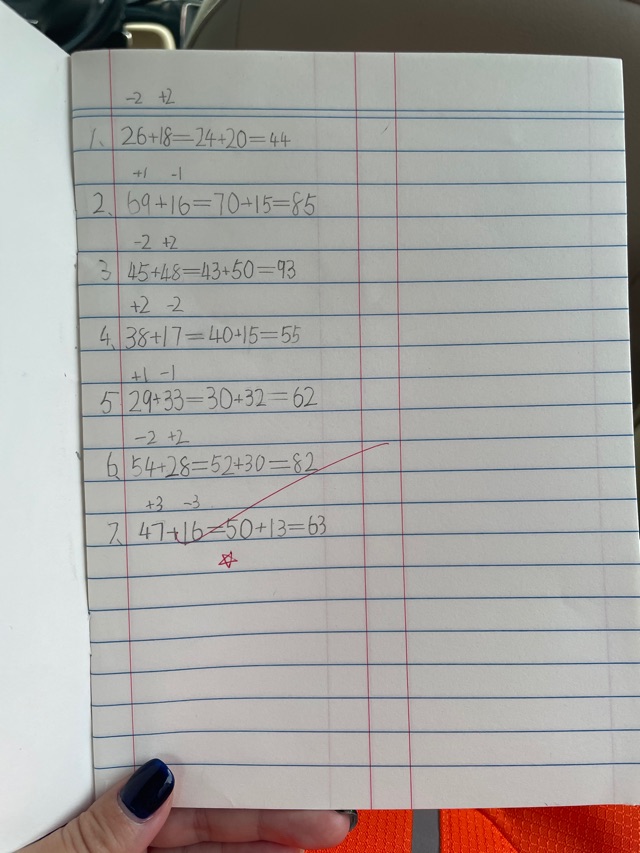 -2 +2
1. 26+18=24+20=44
+1 -1
2. 69+16=70+15=85
-2 +2
3 45+48=43+50=93
+2 -2
4. 38+17=40+15=55
+1 -1
5 29+33=30+32=62
-2 +2
6. 54+28=52+30=82
+3 -3
7. 47+16=50+13=63